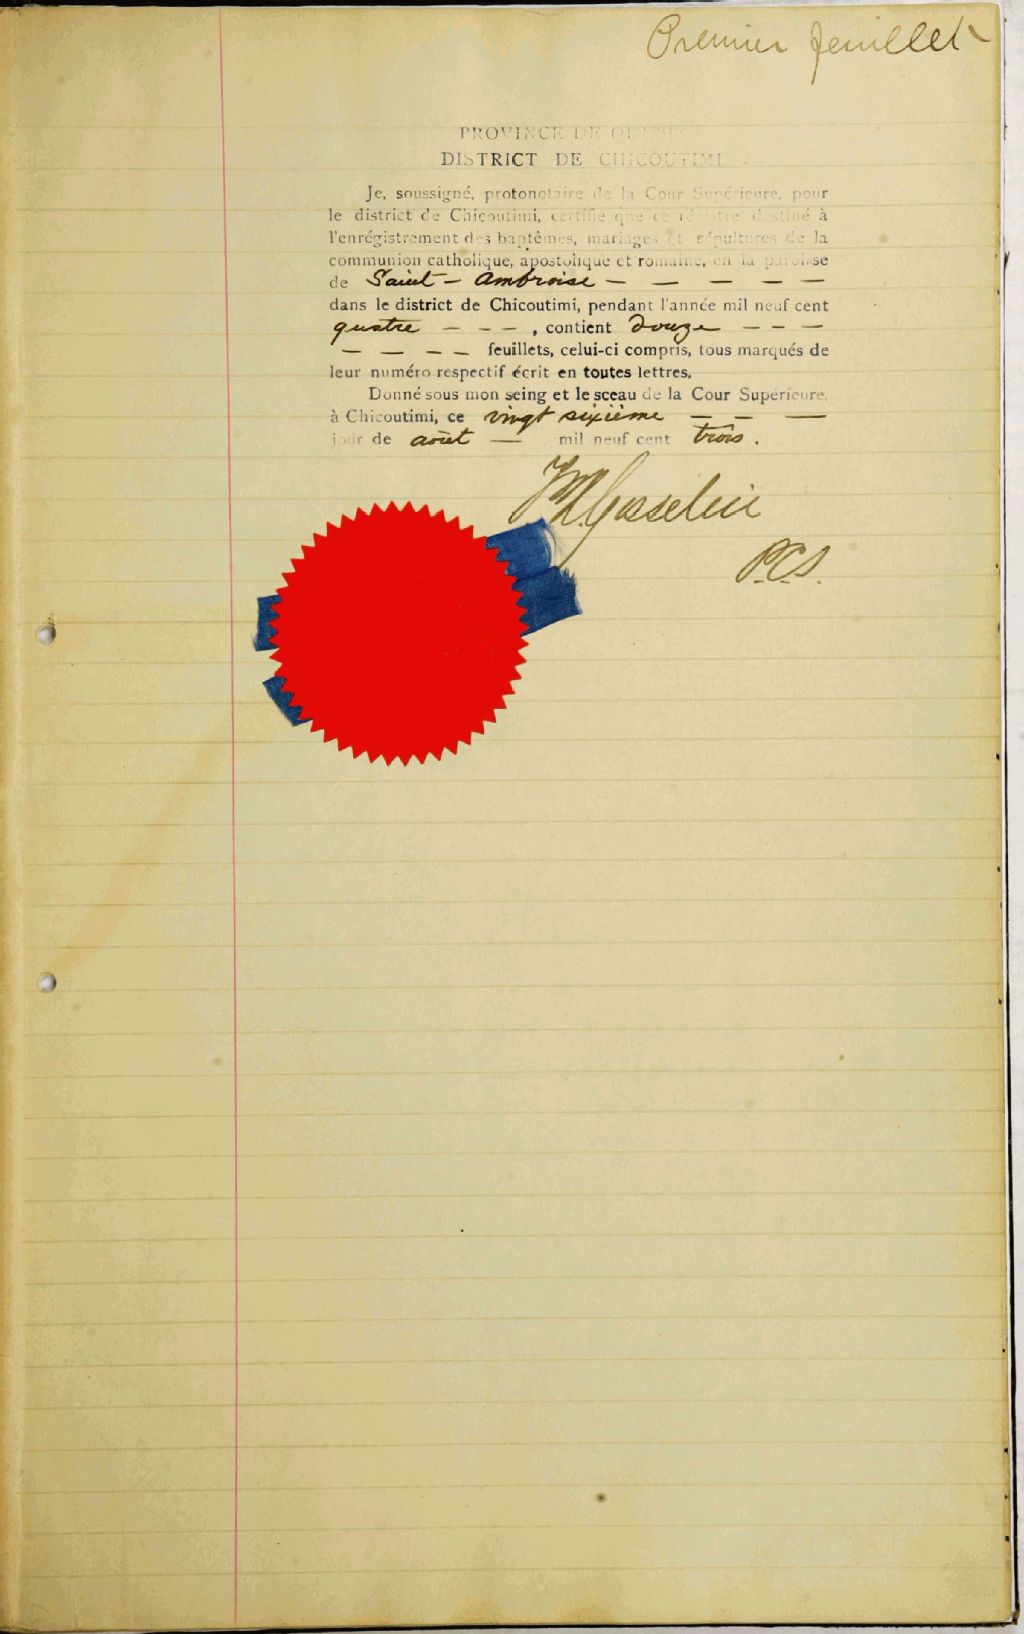 Premier feuillet
PROVINCE DE QUEBEC
DISTRICT DE CHICOUTIMI
Je, soussigné, protonotaire de la Cour Supérieure, pour
le district de Chicoutimi, certifie que ce régistre destiné à
l'enrégistrement des baptêmes, mariages et sépultures de la
communion catholique, apostolique et romaine, en la paroisse
de Saint-Ambroise — — — — —
dans le district de Chicoutimi, pendant l'année mil neuf cent
quatre — — —, contient douze — — —
— — — — feuillets, celui-ci compris, tous marqués de
leur numéro respectif écrit en toutes lettres.
Donné sous mon seing et le sceau de la Cour Supérieure,
à Chicoutimi, ce vingt sixième — — —
jour de août — mil neuf cent trois.
Gosselin
P.C.S.